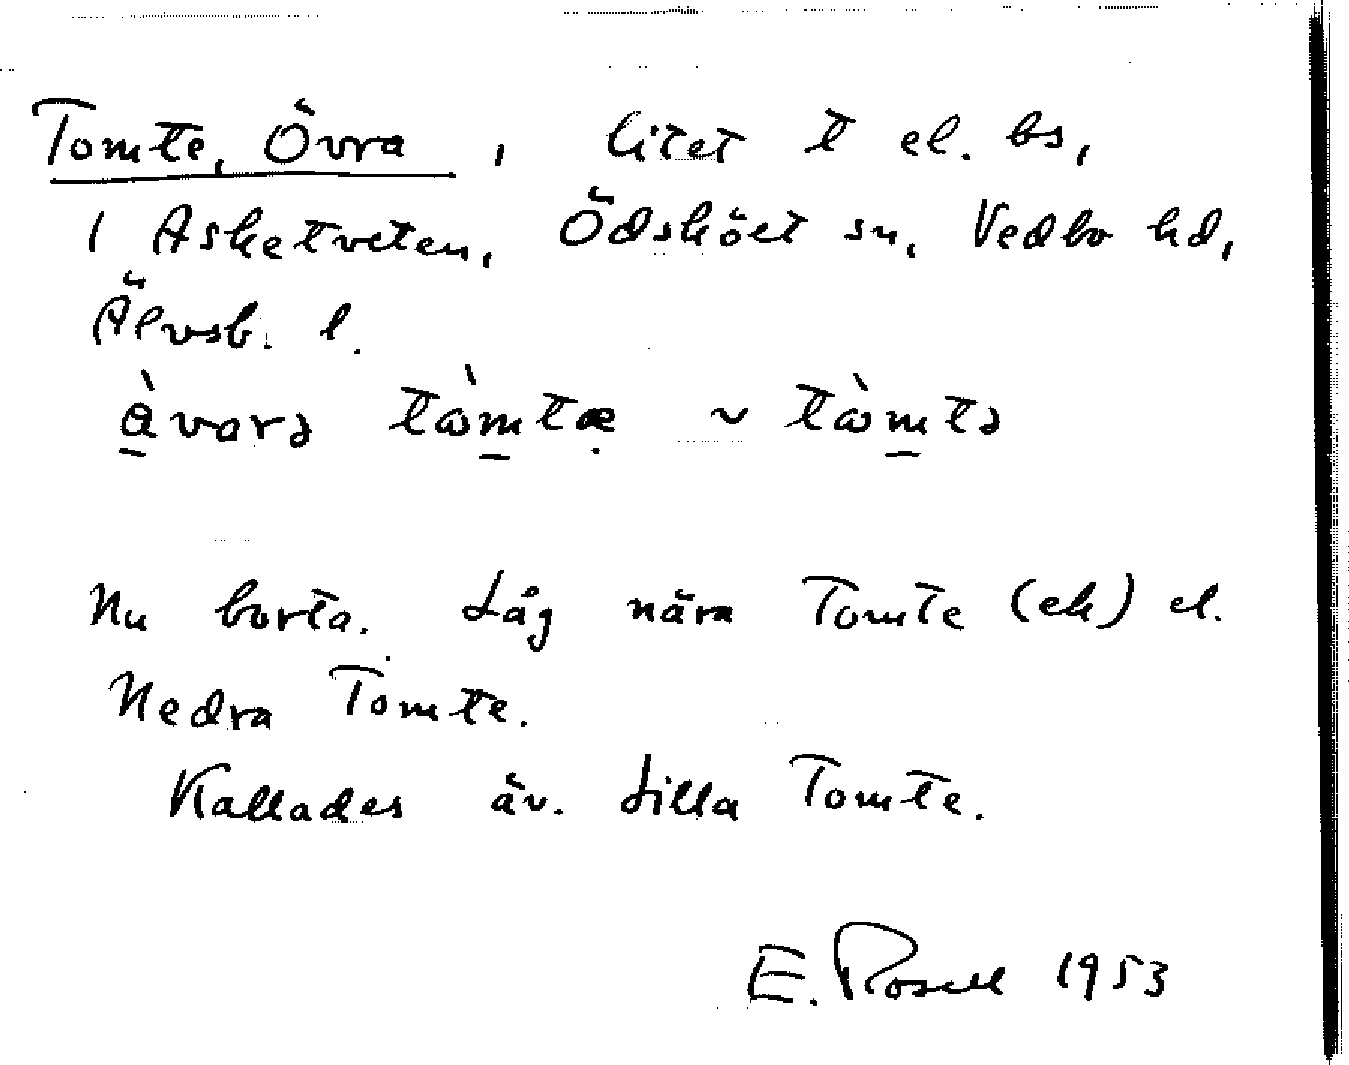 Tomte, Övra, litet t el. bs,
i Asketveten, Ödsköet sn, Vedbo hd,
Älvsb. l.
Nu borta. Låg nära Tomte (ek) el.
Nedra Tomte.
Kallades äv. Lilla Tomte.
E. Rosell 1953